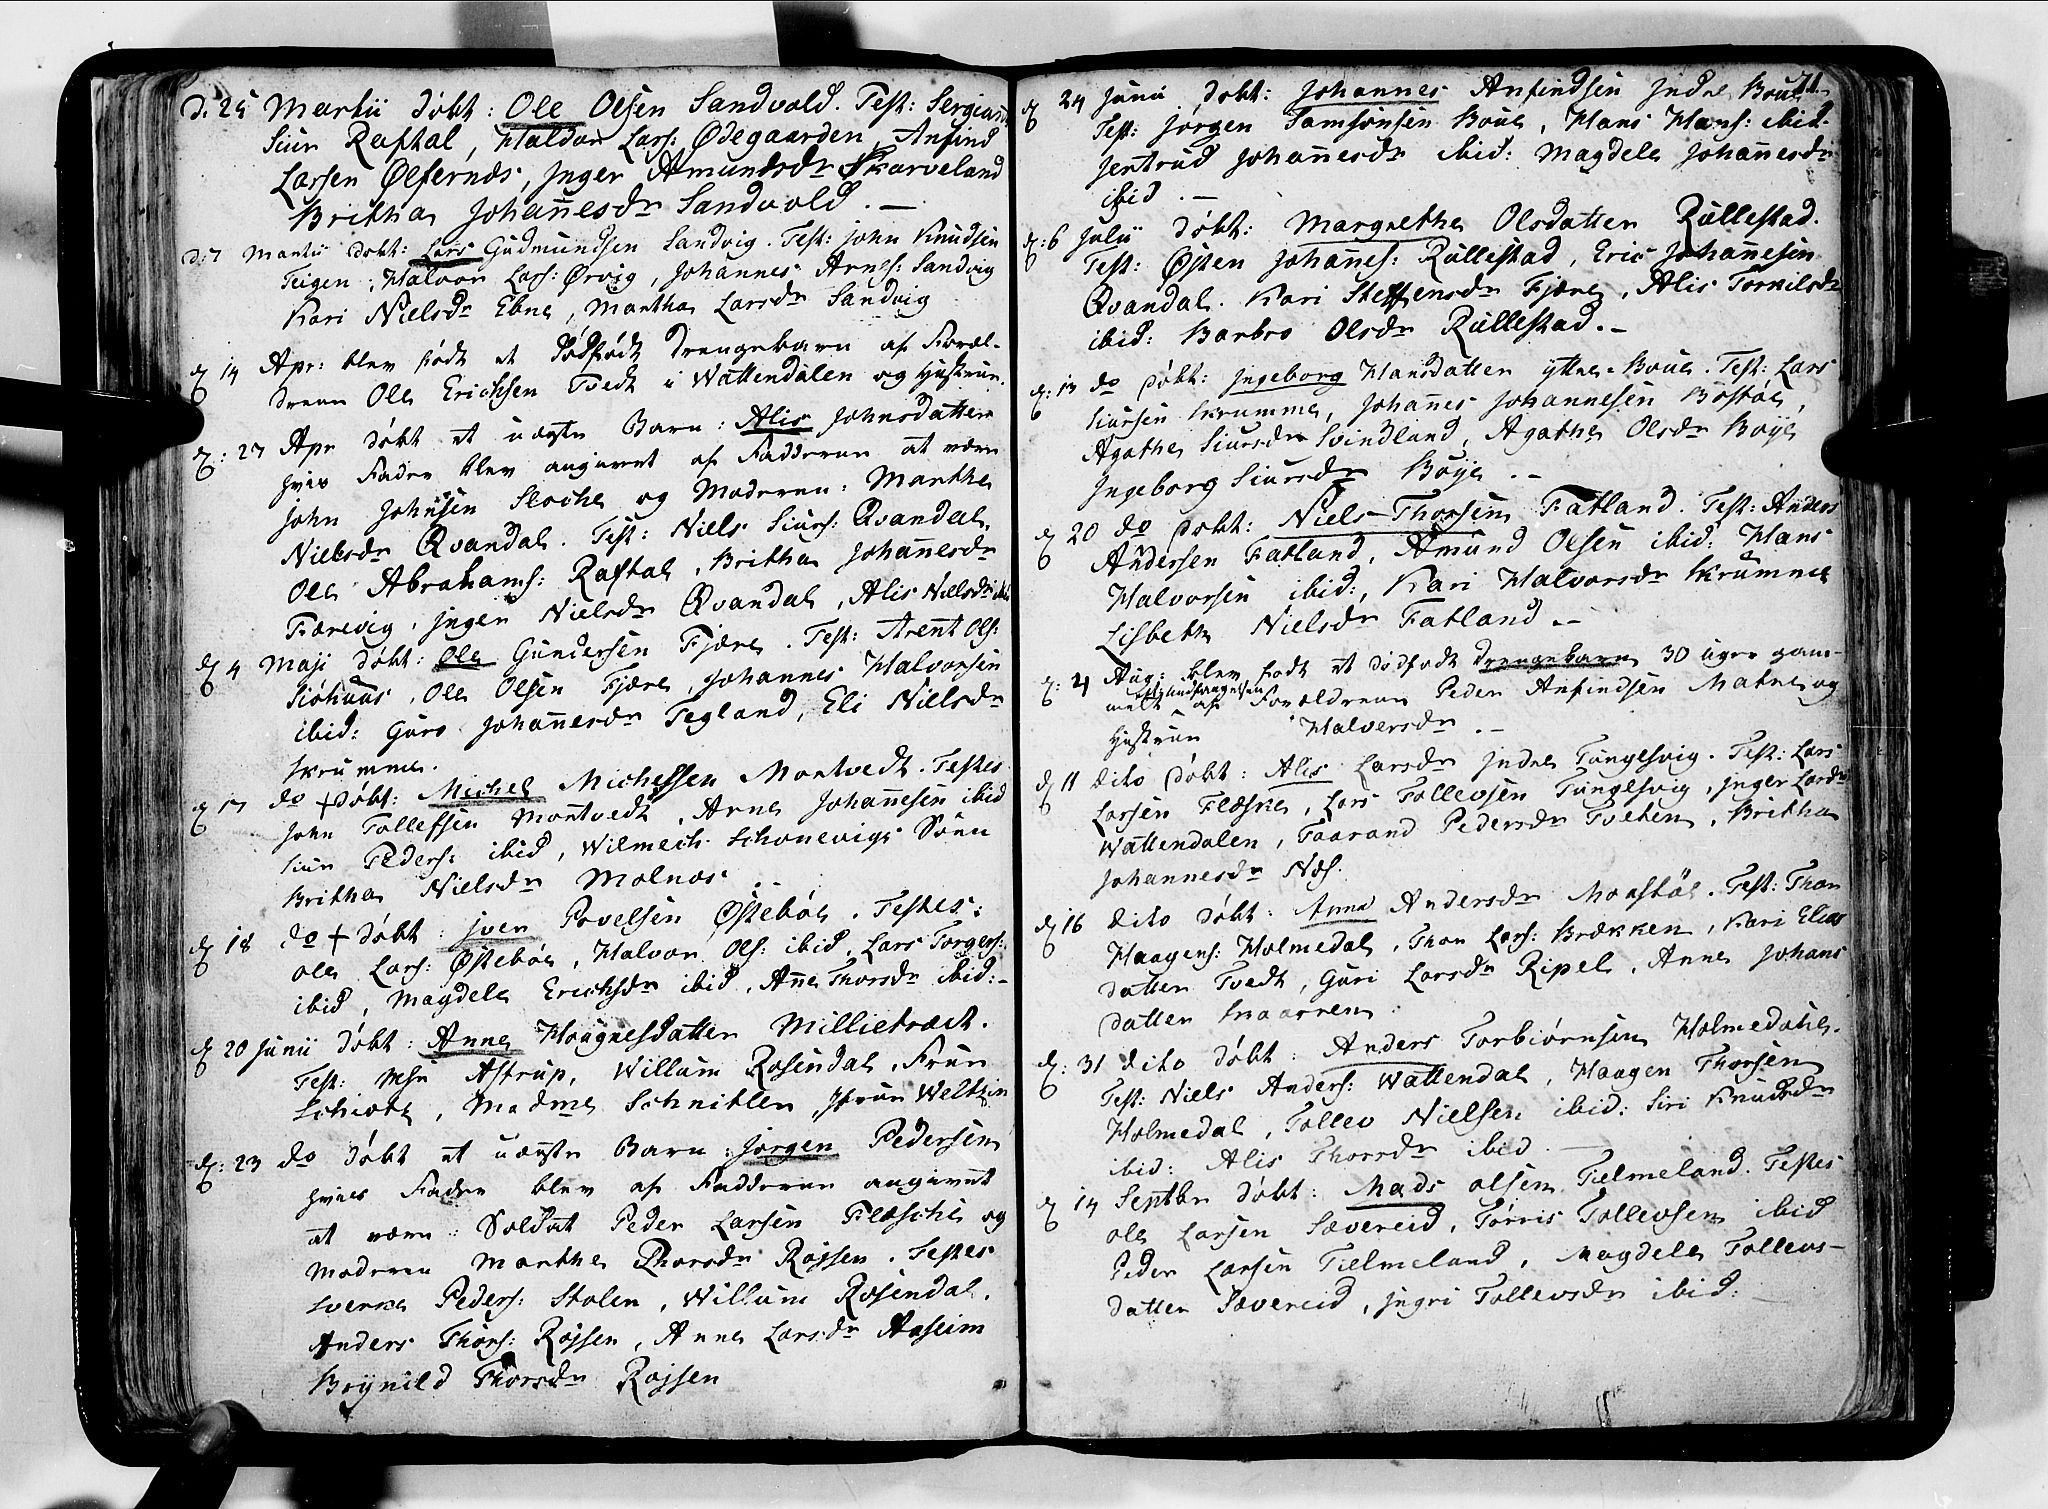 D. 25 Martii døbt: Ole Olsen Sandvold. Test: Sergiant
Siur Raftal, Haldor Lars: Ødegaarden, Anfind
Larsen Ølfernes, Jnger Amundsdr Skarveland
Britha Johannesdr Sandvold. —
D. 7 Martii døbt: Lars Gudmundsen Sandvig. Test: John Knudsen
Teigen, Halvor Lars: Ørvig, Johannes Arnes: Sandvig
Kari Nielsdr Ebne, Martha Larsdr Sandvig
D 14 Apr: blev født et dødfødt drengebarn af Foræl-
drene Ole Erichsen Tvedt i Wattendalen og Hustrue.
D: 27 Apr døbt et uægte Barn: Alis Johnsdatter
hvis Fader blev angivet af Fadderne at være
John Johnsen Sloche og Moderen: Marthe
Nielsdr Qvandal. Test: Niels Siurs: Qvandal,
Ole Abrahams: Raftal, Britha Johannesdr
Færevig, Jnger Nielsdr Qvandal, Alis Nielsdr ibid
D 4 Maji døbt: Ole Gundersen Fjære. Test: Arent Ols:
Siøhuus, Ole Olsen Fjære, Johannes Halvorsen
ibid: Guro Johannesdr Tegland, Eli Nielsdr
Krumme.
D 17 do + døbt: Michel Michelsen Mortvedt. Testes
John Tollefsen Mortvedt, Arne Johannesen ibid
Siur Peders: ibid, Wilmech Schonevigs Søn
Britha Nielsdr Molnes.
D 18 do + døbt: Jver Povelsen Østebøe. Testes:
Ole Lars: Østebøe, Halvor Ols: ibid, Lars Torgers:
ibid, Magdele Erichsdr ibid, Anne Thorsdr ibid: -
D 20 Junii døbt: Anne Haugnesdatter Millietræet.
Test: Msr Astrup, Willum Rosendal, Frue
Schiøtz, Madme Schnitler, Jfrue Weltzin
D: 23 do døbt et uægte Barn: Jørgen Pedersen
hvies Fader blev af Fadderne angivet
at være: Soldat Peder Larsen Flæsche og
Moderen Marthe Thorsdr Røjsen. Testes
Sverke Peders: Stolen, Willum Rosendal,
Anders Thors: Røjsen, Anne Larsdr Aaseim
Brynild Thorsdr Røjsen
71
D 24 Junii døbt: Johannes Anfindsen Jndre Boue
Test: Jørgen Samsonsen Boue, Hans Hans: ibid.
Jentrud Johannesdr ibid: Magdele Johannesdr
ibid. —
D: 6 Julii døbt: Margrethe Olsdatter Rullestad.
Test: Østen Johanes: Rullestad, Eric Johannesen
Qvandal. Kari Steffensdr Fjære, Alis Torkilsdr
ibid: Barbro Olsdr Rullestad. —
D: 13 do døbt: Jngeborg Hansdatter yttre Boue. Test: Lars
Siursen Krumme, Johanes Johannesen Bøstøe,
Agathe Siursdr Svindland, Agathe Olsdr Boye
Jngeborg Siursdr Boye. —
D 20 do døbt: Niels Thorsen Fatland. Test: Anders
Andersen Fatland, Amund Olsen ibid. Hans
Halvorsen ibid:, Kari Halvorsdr Krumme
Lisbeth Nielsdr Fatland. —
D: 4 Aug: blev født et dødfødt drengebarn 30 uger gam-
melt af Forældrene Peder Anfindsen Matre og
Hustrue Halversdr. —
D 11 dito døbt: Alis Larsdr Jndre Tungesvig. Test: Lars
Larsen Flæske, Lars Tollevsen Tungesvig, Jnger Larsdr
Wattendalen, Taarand Pedersdr Tveten, Britha
Johannesdr Næs.
D 16 dito døbt: Anna Andersdr Moestøl. Test: Thor
Haagens: Holmedal, Thor Lars: Brekken, Kari Elias
datter Tvedt, Guri Larsdr Ripel, Anne Johans
datter Snaarren.
D: 31 dito døbt: Anders Torbiørnsen Holmedahl.
Test: Niels Anders: Wattendal, Haagen Thorsen
Holmedal, Tollev Nielsen ibid: Siri Knudsdr
ibid: Alis Thorsdr ibid. —
D 14 Septbr døbt: Mads Olsen Tielmeland. Testes
Ole Larsen Sævereid, Tørris Tollevsen ibid
Peder Larsen Tielmeland, Magdele Tollevs-
datter Sævereid, Jngri Tollevsdr ibid: —